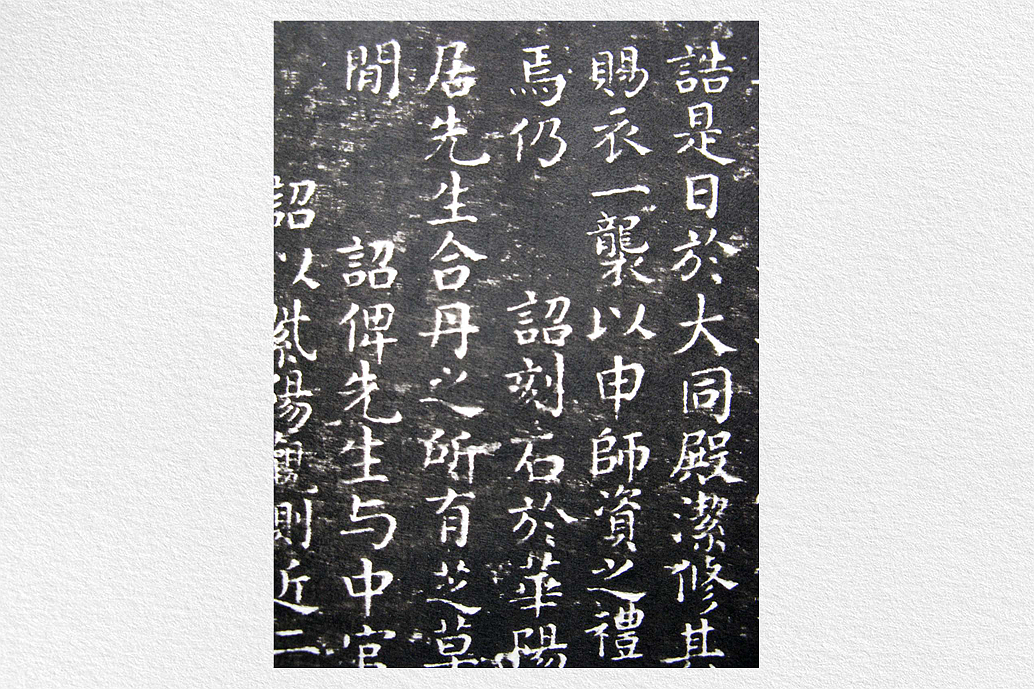 誥是日於大同殿潔修其
賜衣一襲以申師資之禮
焉仍 詔刻石於華陽
居先生合丹之所有芝草
間 詔俾先生与中官
詔以紫陽觀側近二